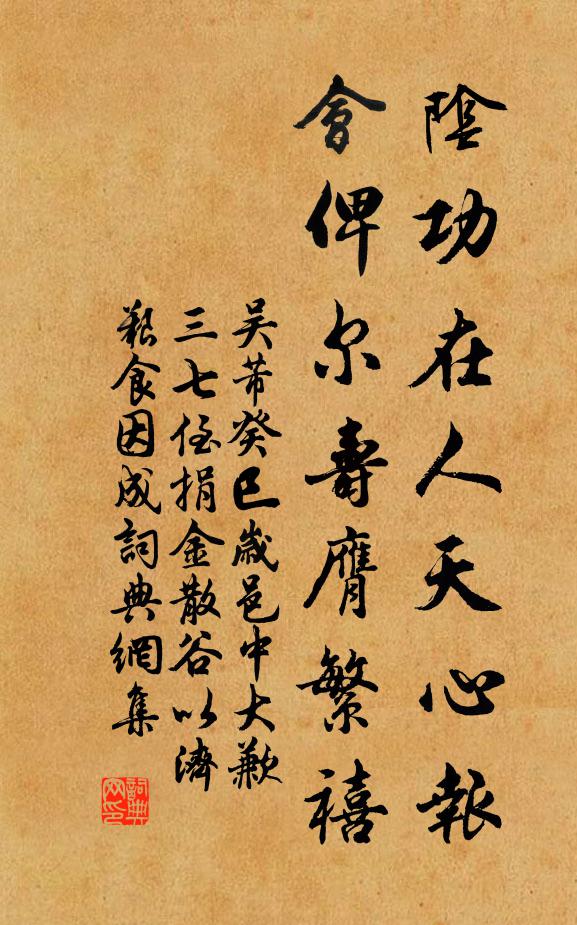 陰功在人天心報
會俾尔壽膺繁禧
吴芾癸巳歲邑中大歉
三七侄捐金散谷以濟
艱食因成詞典網集
詞典
网印